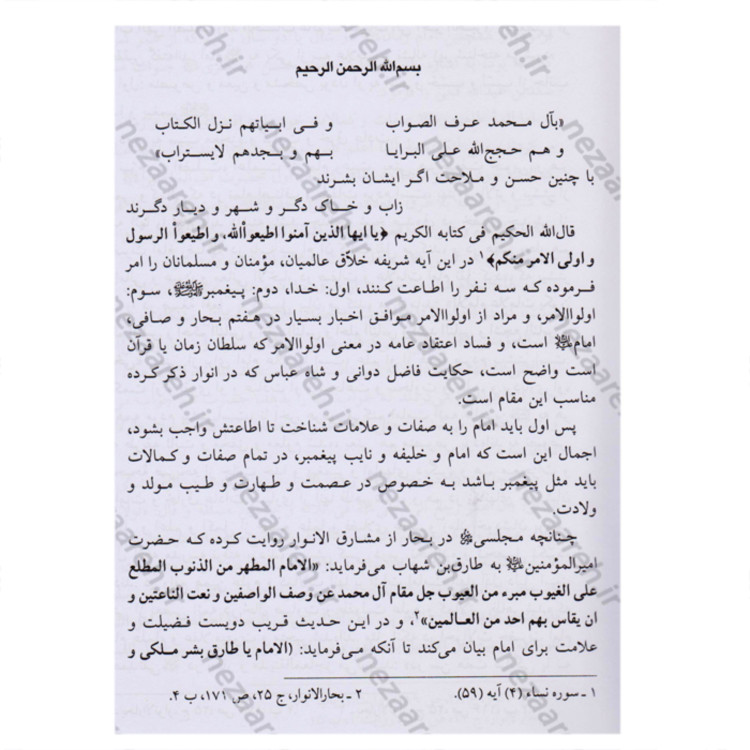 بسم‌الله الرحمن الرحیم
«بآل محمد عرف الصواب و فی ابیاتهم نزل الکتاب
و هم حجج‌الله علی البرایا بهم و بجدهم لایستراب»
با چنین حسن و ملاحت اگر ایشان بشرند
زاب و خاک دگر و شهر و دیار دگرند
قال‌الله الحکیم فی کتابه الکریم ﴿یا ایها الذین آمنوا اطیعواالله، و اطیعوا الرسول
و اولی الامر منکم﴾۱ در این آیه شریفه خلاّق عالمیان، مؤمنان و مسلمانان را امر
فرموده که سه نفر را اطاعت کنند، اول: خدا، دوم: پیغمبرﷺ، سوم:
اولواالامر، و مراد از اولواالامر موافق اخبار بسیار در هفتم بحار و صافی،
امام است، و فساد اعتقاد عامه در معنی اولواالامر که سلطان زمان یا قرآن
است واضح است، حکایت فاضل دوانی و شاه عباس که در انوار ذکر کرده
مناسب این مقام است.
پس اول باید امام را به صفات و علامات شناخت تا اطاعتش واجب بشود،
اجمال این است که امام و خلیفه و نایب پیغمبر، در تمام صفات و کمالات
باید مثل پیغمبر باشد به خصوص در عصمت و طهارت و طیب مولد و
ولادت.
چنانچه مجلسی در بحار از مشارق الانوار روایت کرده که حضرت
امیرالمؤمنین به طارق‌بن شهاب می‌فرماید: «الامام المطهر من الذنوب المطلع
علی الغیوب مبره من العیوب جل مقام آل محمد عن وصف الواصفین و نعت الناعتین و
ان یقاس بهم احد من العالمین»۲، و در این حدیث قریب دویست فضیلت و
علامت برای امام بیان می‌کند تا آنکه می‌فرماید: (الامام یا طارق بشر ملکی و
۱ ـ سوره نساء (۴) آیه (۵۹). ۲ ـ بحارالانوار، ج ۲۵، ص ۱۷۱، ب ۴.
nezaareh.ir